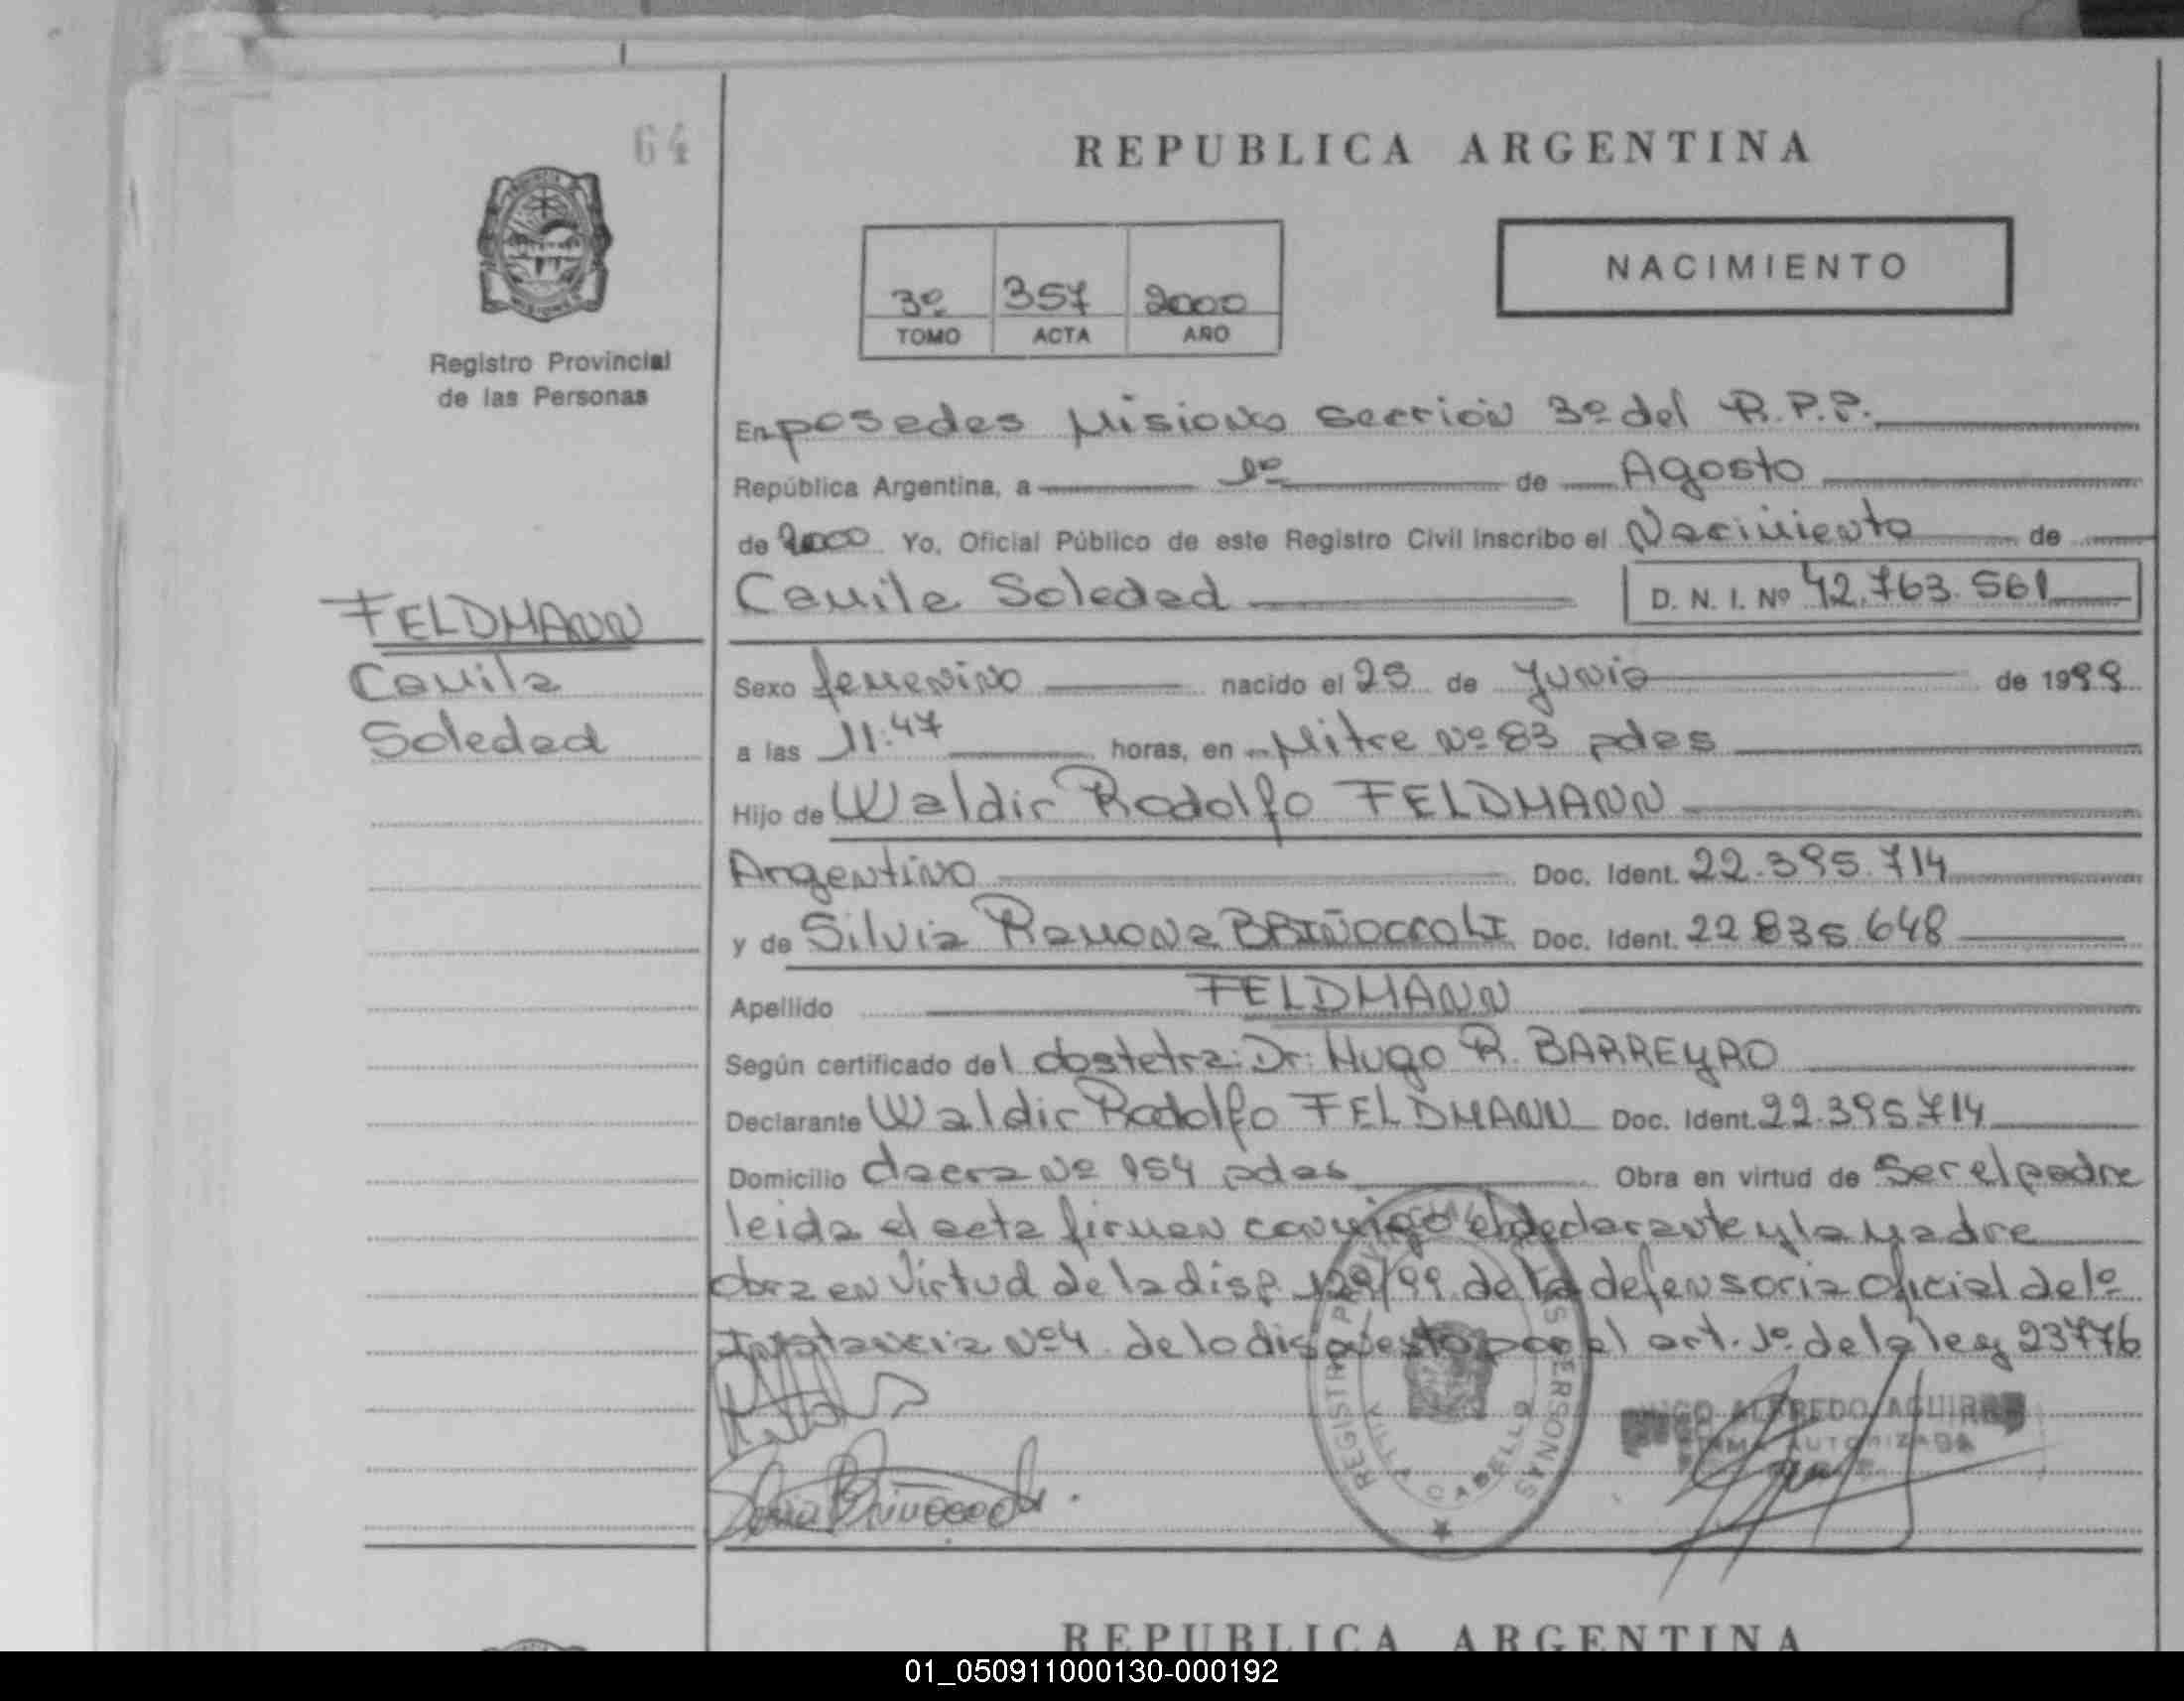 64
REPUBLICA ARGENTINA
NACIMIENTO
3º 357 2000
TOMO ACTA AÑO
Registro Provincial
de las Personas
En posadas Misiones sección 3º del R.P.P.
República Argentina, a 1º de Agosto
de 2000 Yo, Oficial Público de este Registro Civil Inscribo el Nacimiento de
Camila Soledad D. N. I. Nº 42.763.561
FELDMANN
Camila
Soledad
Sexo femenino nacido el 25 de Junio de 1999
a las 11:47 horas, en Mitre Nº 83 pdas
Hijo de Waldir Rodolfo FELDMANN
Argentino Doc. Ident. 22.395.714
y de Silvia Ramona BRIÑOCCOLI Doc. Ident. 22 835 648
Apellido FELDMANN
Según certificado del obstetra: Dr: Hugo R. BARREYRO
Declarante Waldir Rodolfo FELDMANN Doc. Ident. 22.395.714
Domicilio chacra Nº 154 pdas Obra en virtud de Ser el padre
leida el acta firman conmigo el declarante y la madre
obra en virtud de la disp. 129/99 de la defensoria oficial de 1º
Instancia Nº 4 de lo dispuesto por el art. 1º de la ley 23776
REGISTRO PERSONAS
VILLA CABELLO
HUGO ALFREDO AGUIRRE
FIRMA AUTORIZADA
REPUBLICA ARGENTINA
01_050911000130-000192